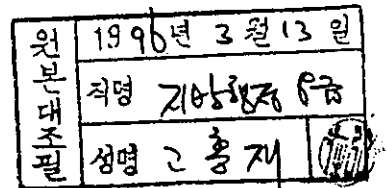 원본대조필
1996년 3월 13일
직명 지방행정 8급
성명 고홍재